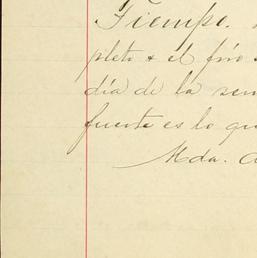 Tiempo.
pleto & el frio
día de la sem
fuerte es lo qu
Mda. A